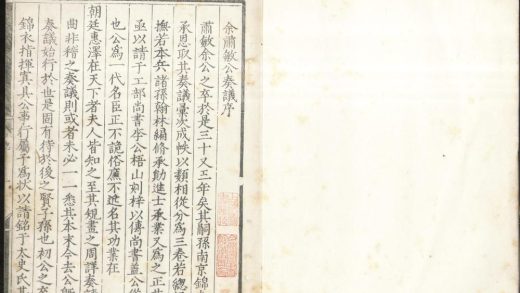 余肅敏公奏議序
肅敏余公之卒於是三十又五年矣其嗣孫南京錦
承恩取其奏議彙次成帙以類相從分為三卷若總
撫若本兵諸孫翰林編修承勛進士承業又為之正
亟以請于工部尚書李公梧山刻梓以傳尚書蓋公
也公為一代名臣正不詭俗廉不遮名其功業在
朝廷惠澤在天下者夫人皆知之至其規畫之周詳奏
曲非稽之奏議則或者未必一一悉其本末今去公
奏議始行於世是固有待於後之賢子孫也初公之卒
錦衣指揮寘具公事行屬予為狀以請銘于太史氏